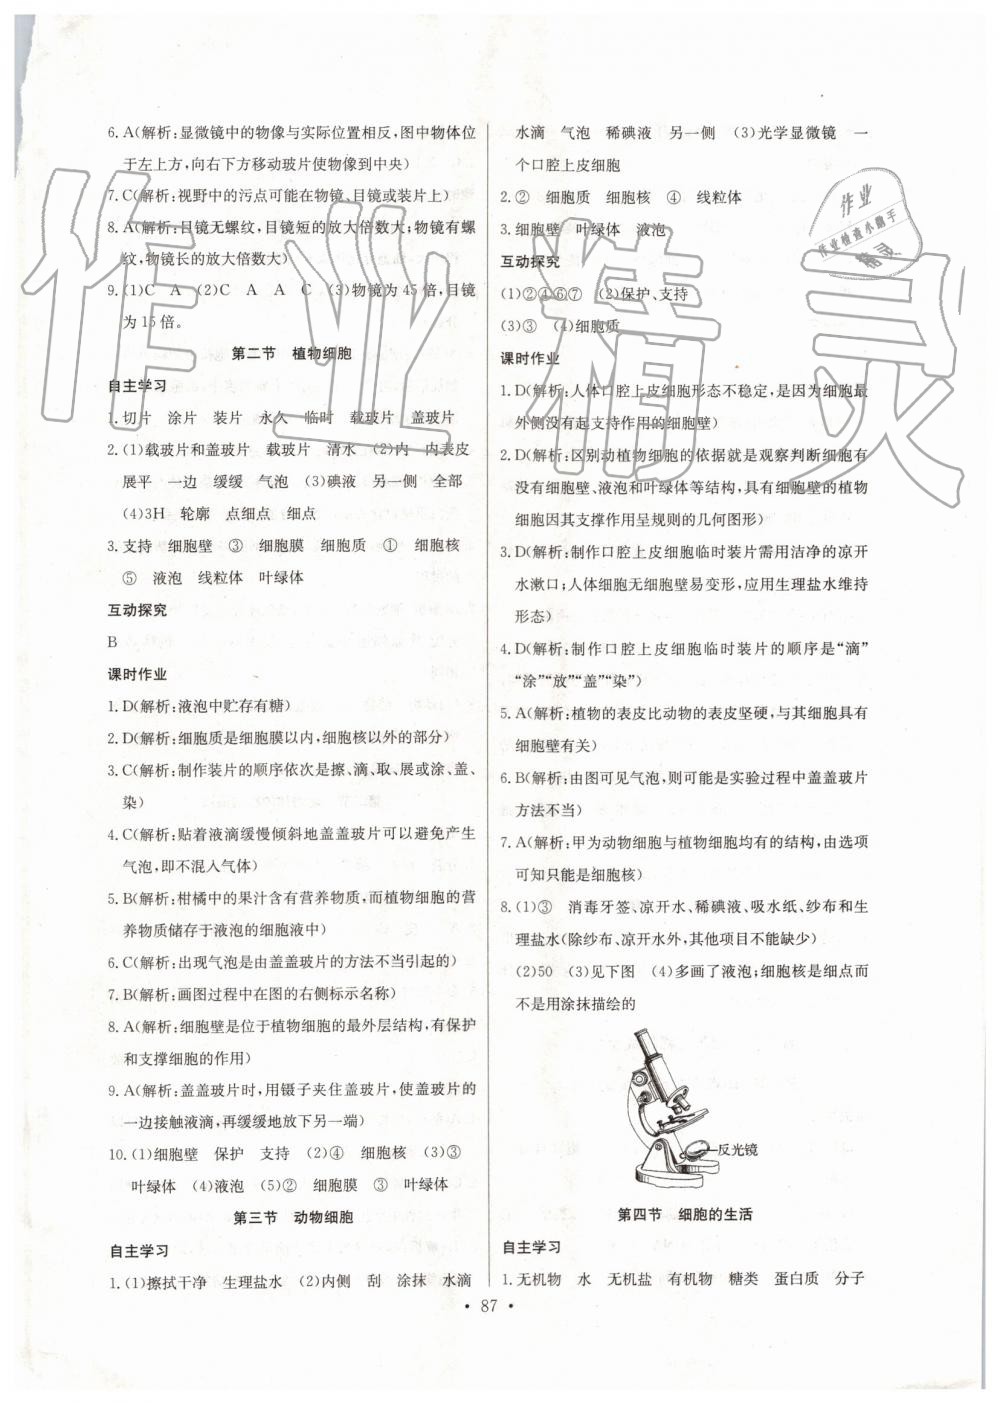 6. A(解析:显微镜中的物像与实际位置相反,图中物体位
于左上方,向右下方移动玻片使物像到中央)
7. C(解析:视野中的污点可能在物镜、目镜或装片上)
8. A(解析:目镜无螺纹,目镜短的放大倍数大;物镜有螺
纹,物镜长的放大倍数大)
9. (1)C A (2)C A A C (3)物镜为45倍,目镜
为15倍。
第二节 植物细胞
自主学习
1. 切片 涂片 装片 永久 临时 载玻片 盖玻片
2. (1)载玻片和盖玻片 载玻片 清水 (2)内 内表皮
展平 一边 缓缓 气泡 (3)碘液 另一侧 全部
(4)3H 轮廓 点细点 细点
3. 支持 细胞壁 ③ 细胞膜 细胞质 ① 细胞核
⑤ 液泡 线粒体 叶绿体
互动探究
B
课时作业
1. D(解析:液泡中贮存有糖)
2. D(解析:细胞质是细胞膜以内,细胞核以外的部分)
3. C(解析:制作装片的顺序依次是擦、滴、取、展或涂、盖、
染)
4. C(解析:贴着液滴缓慢倾斜地盖盖玻片可以避免产生
气泡,即不混入气体)
5. B(解析:柑橘中的果汁含有营养物质,而植物细胞的营
养物质储存于液泡的细胞液中)
6. C(解析:出现气泡是由盖盖玻片的方法不当引起的)
7. B(解析:画图过程中在图的右侧标示名称)
8. A(解析:细胞壁是位于植物细胞的最外层结构,有保护
和支撑细胞的作用)
9. A(解析:盖盖玻片时,用镊子夹住盖玻片,使盖玻片的
一边接触液滴,再缓缓地放下另一端)
10. (1)细胞壁 保护 支持 (2)④ 细胞核 (3)③
叶绿体 (4)液泡 (5)② 细胞膜 ③ 叶绿体
第三节 动物细胞
自主学习
1. (1)擦拭干净 生理盐水 (2)内侧 刮 涂抹 水滴
水滴 气泡 稀碘液 另一侧 (3)光学显微镜 一
个口腔上皮细胞
2. ② 细胞质 细胞核 ④ 线粒体
3. 细胞壁 叶绿体 液泡
互动探究
(1)②④⑥⑦ (2)保护、支持
(3)③ (4)细胞质
课时作业
1. D(解析:人体口腔上皮细胞形态不稳定,是因为细胞最
外侧没有起支持作用的细胞壁)
2. D(解析:区别动植物细胞的依据就是观察判断细胞有
没有细胞壁、液泡和叶绿体等结构,具有细胞壁的植物
细胞因其支撑作用呈规则的几何图形)
3. D(解析:制作口腔上皮细胞临时装片需用洁净的凉开
水漱口;人体细胞无细胞壁易变形,应用生理盐水维持
形态)
4. D(解析:制作口腔上皮细胞临时装片的顺序是“滴”
“涂”“放”“盖”“染”)
5. A(解析:植物的表皮比动物的表皮坚硬,与其细胞具有
细胞壁有关)
6. B(解析:由图可见气泡,则可能是实验过程中盖盖玻片
方法不当)
7. A(解析:甲为动物细胞与植物细胞均有的结构,由选项
可知只能是细胞核)
8. (1)③ 消毒牙签、凉开水、稀碘液、吸水纸、纱布和生
理盐水(除纱布、凉开水外,其他项目不能缺少)
(2)50 (3)见下图 (4)多画了液泡;细胞核是细点而
不是用涂抹描绘的
反光镜
第四节 细胞的生活
自主学习
1. 无机物 水 无机盐 有机物 糖类 蛋白质 分子
• 87 •
作业精灵
作业
作业检查小助手
精灵